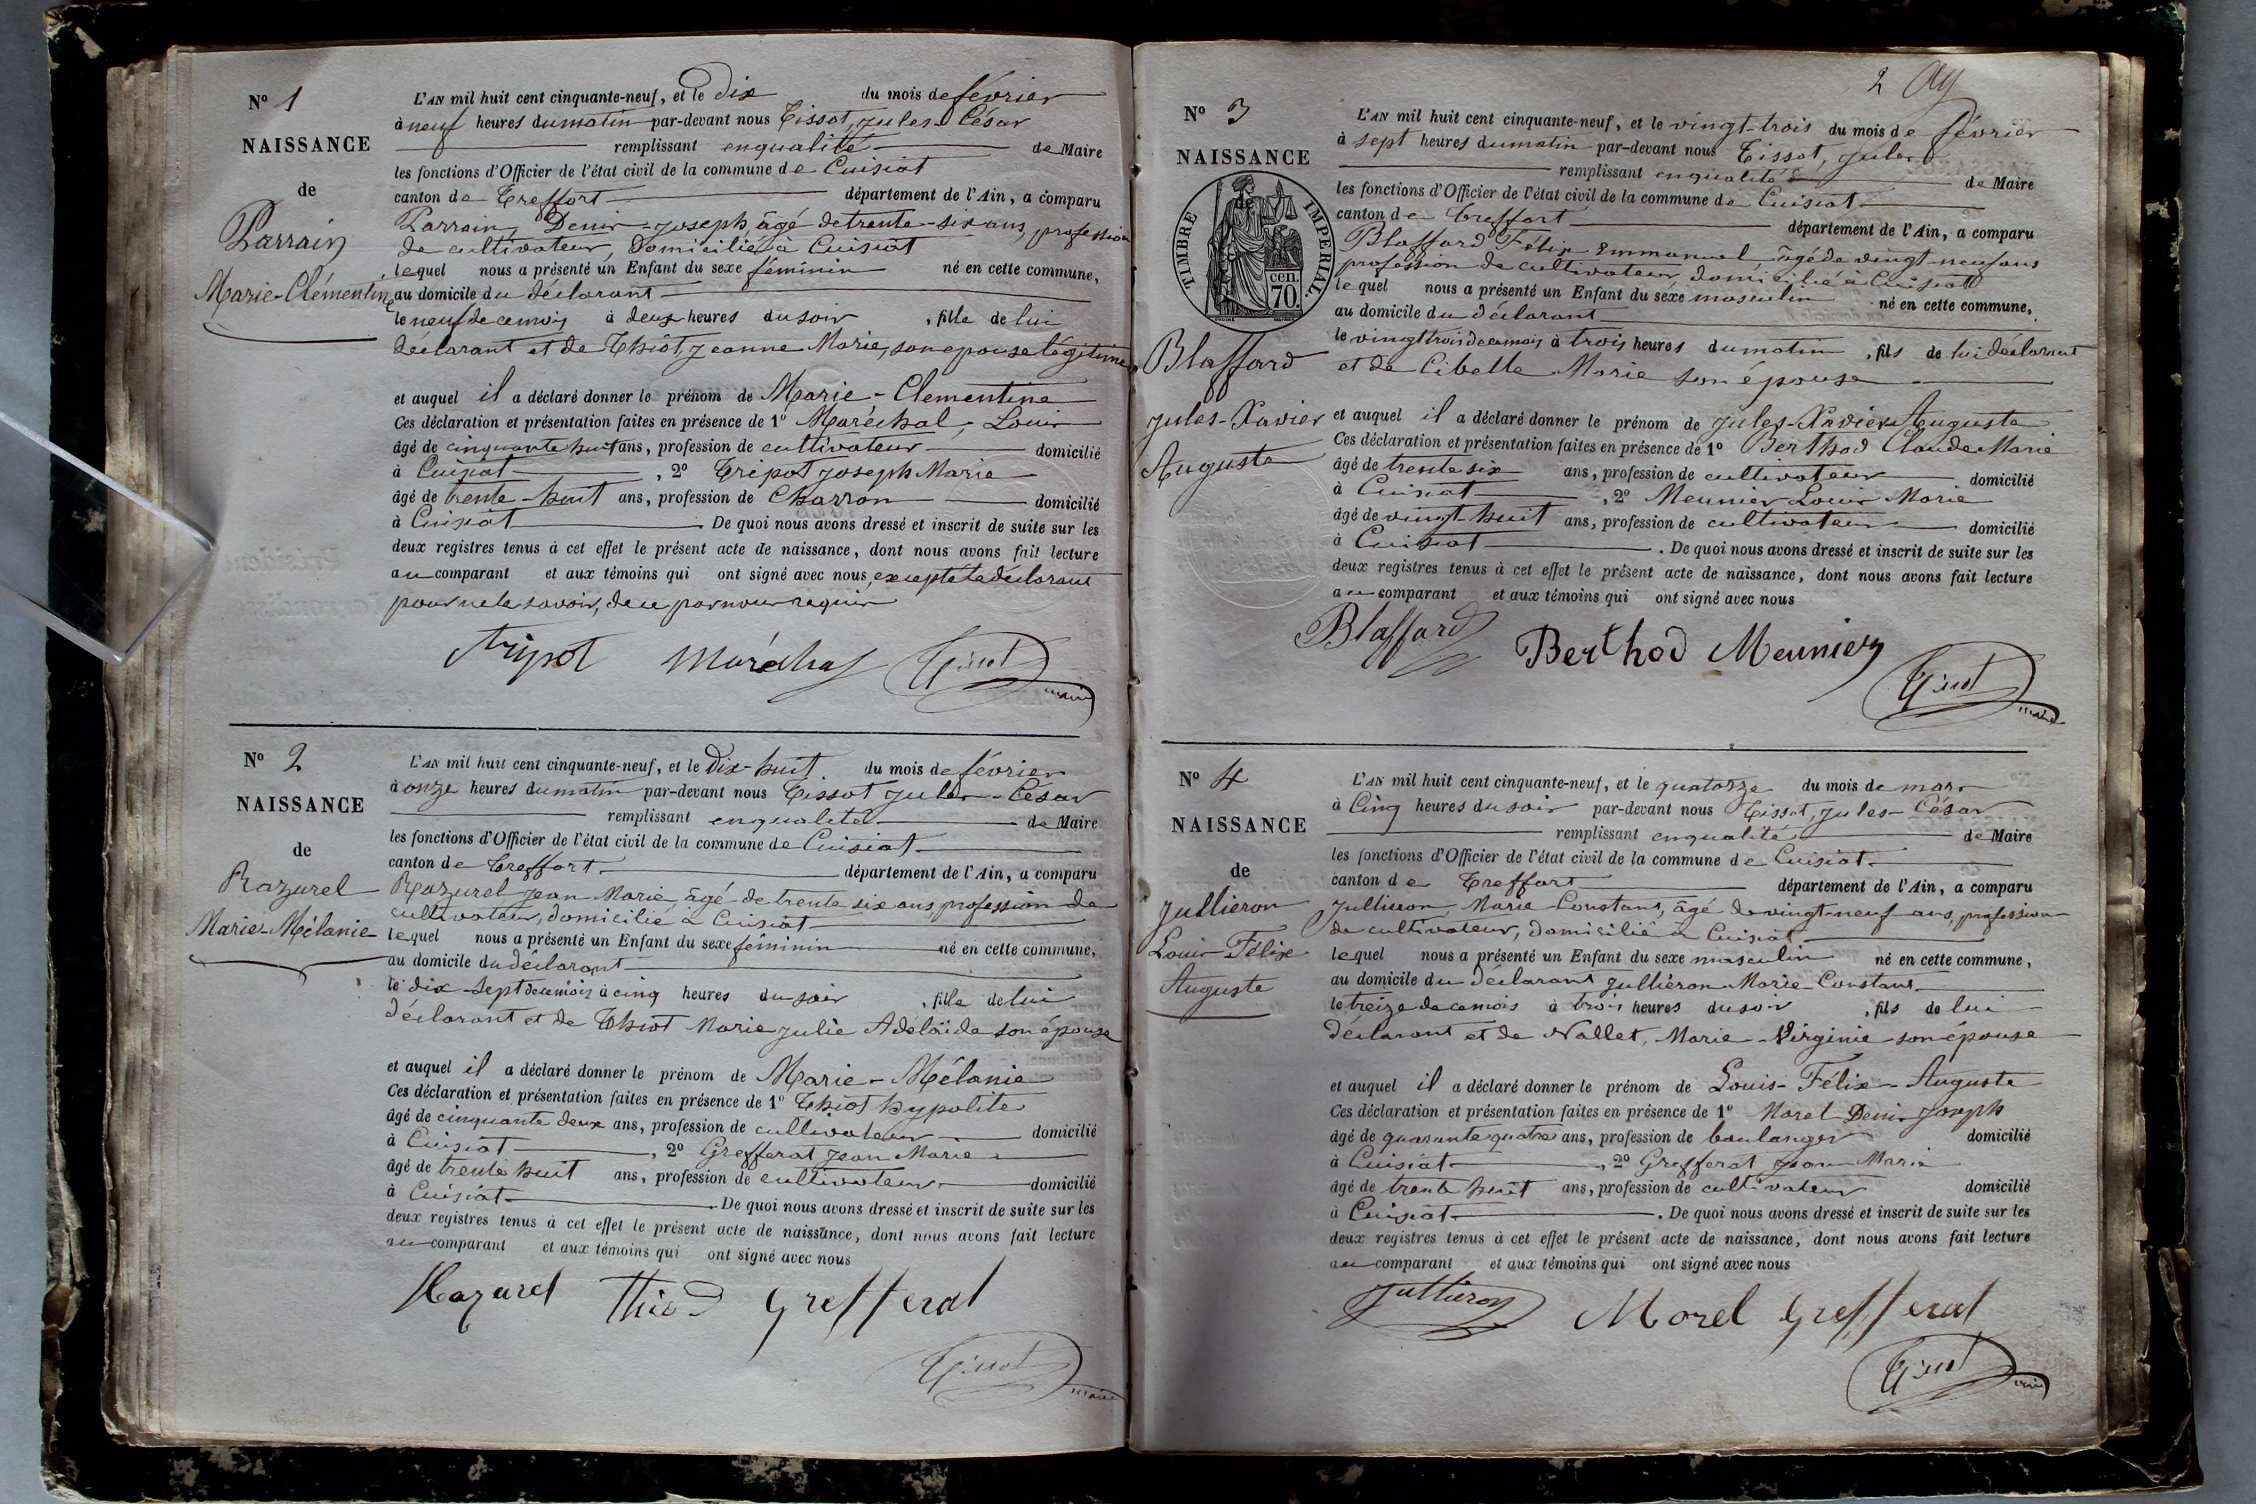 Nº 1
NAISSANCE
de
Parrain
Marie-Clémentine
L'AN mil huit cent cinquante-neuf, et le dix du mois de février
à neuf heures du matin par-devant nous Tissot, Jules-César
remplissant en qualité de Maire
les fonctions d'Officier de l'état civil de la commune de Cuisiat
canton de Treffort département de l'Ain, a comparu
Parrain, Denis-Joseph, âgé de trente-six ans, profession
de cultivateur, domicilié à Cuisiat
lequel nous a présenté un Enfant du sexe féminin né en cette commune,
au domicile du déclarant
le neuf de ce mois à deux heures du soir, fille de lui
déclarant et de Thiot, Jeanne Marie, son epouse légitime
et auquel il a déclaré donner le prénom de Marie-Clementine
Ces déclaration et présentation faites en présence de 1º Maréchal, Louis
âgé de cinquante huit ans, profession de cultivateur domicilié
à Cuisiat, 2º Tripot Joseph Marie
âgé de trente-huit ans, profession de Charron domicilié
à Cuisiat. De quoi nous avons dressé et inscrit de suite sur les
deux registres tenus à cet effet le présent acte de naissance, dont nous avons fait lecture
au comparant et aux témoins qui ont signé avec nous, excepté le déclarant
pour ne le savoir, de ce par nous requis
tripot Maréchal Tissot maire
Nº 2
NAISSANCE
de
Razurel
Marie-Mélanie
L'AN mil huit cent cinquante-neuf, et le Dix-huit du mois de février
à onze heures du matin par-devant nous Tissot Jules-César
remplissant en qualité de Maire
les fonctions d'Officier de l'état civil de la commune de Cuisiat
canton de Treffort département de l'Ain, a comparu
Razurel Jean Marie, âgé de trente six ans, profession de
cultivateur, domicilié à Cuisiat
lequel nous a présenté un Enfant du sexe féminin né en cette commune,
au domicile du déclarant
le dix-sept de ce mois à cinq heures du soir, fille de lui
déclarant et de Thiot Marie Julie Adélaïde son épouse
et auquel il a déclaré donner le prénom de Marie-Mélanie
Ces déclaration et présentation faites en présence de 1º Thiot hypolite
âgé de cinquante deux ans, profession de cultivateur domicilié
à Cuisiat, 2º Grefferat Jean Marie
âgé de trente huit ans, profession de cultivateur domicilié
à Cuisiat. De quoi nous avons dressé et inscrit de suite sur les
deux registres tenus à cet effet le présent acte de naissance, dont nous avons fait lecture
au comparant et aux témoins qui ont signé avec nous
Razurel Thiod Grefferat
Tissot maire
2
Nº 3
NAISSANCE
TIMBRE IMPERIAL.
cen.
70.
Blaffard
Jules-Xavier
Auguste
L'AN mil huit cent cinquante-neuf, et le vingt-trois du mois de février
à sept heures du matin par-devant nous Tissot, Jules
remplissant en qualité de Maire
les fonctions d'Officier de l'état civil de la commune de Cuisiat
canton de Treffort département de l'Ain, a comparu
Blaffard Félix-Emmanuel âgé de vingt-neuf ans
profession de cultivateur domicilié à Cuisiat
lequel nous a présenté un Enfant du sexe masculin né en cette commune,
au domicile du déclarant
le vingt trois de ce mois à trois heures du matin, fils de lui déclarant
et de Cibelle Marie son épouse
et auquel il a déclaré donner le prénom de Jules-Xavier Auguste
Ces déclaration et présentation faites en présence de 1º Berthod Claude Marie
âgé de trente six ans, profession de cultivateur domicilié
à Cuisiat, 2º Meunier Louis Marie
âgé de vingt-huit ans, profession de cultivateur domicilié
à Cuisiat. De quoi nous avons dressé et inscrit de suite sur les
deux registres tenus à cet effet le présent acte de naissance, dont nous avons fait lecture
au comparant et aux témoins qui ont signé avec nous
Blaffard Berthod Meunier
Tissot maire
Nº 4
NAISSANCE
de
Jullieron
Louis-Félix
Auguste
L'AN mil huit cent cinquante-neuf, et le quatorze du mois de mars
à Cinq heures du soir par-devant nous Tissot, Jules-César
remplissant en qualité de Maire
les fonctions d'Officier de l'état civil de la commune de Cuisiat
canton de Treffort département de l'Ain, a comparu
Jullieron, Marie Constant, âgé de vingt-neuf ans, profession
de cultivateur, domicilié à Cuisiat
lequel nous a présenté un Enfant du sexe masculin né en cette commune,
au domicile du déclarant Julliéron Marie-Constant
le treize de ce mois à trois heures du soir, fils de lui
déclarant et de Nallet, Marie-Virginie son épouse
et auquel il a déclaré donner le prénom de Louis-Félix-Auguste
Ces déclaration et présentation faites en présence de 1º Morel Denis Joseph
âgé de quarante quatre ans, profession de boulanger domicilié
à Cuisiat, 2º Grefferat Jean Marie
âgé de trente huit ans, profession de cultivateur domicilié
à Cuisiat. De quoi nous avons dressé et inscrit de suite sur les
deux registres tenus à cet effet le présent acte de naissance, dont nous avons fait lecture
au comparant et aux témoins qui ont signé avec nous
Jullieron Morel Grefferat
Tissot maire